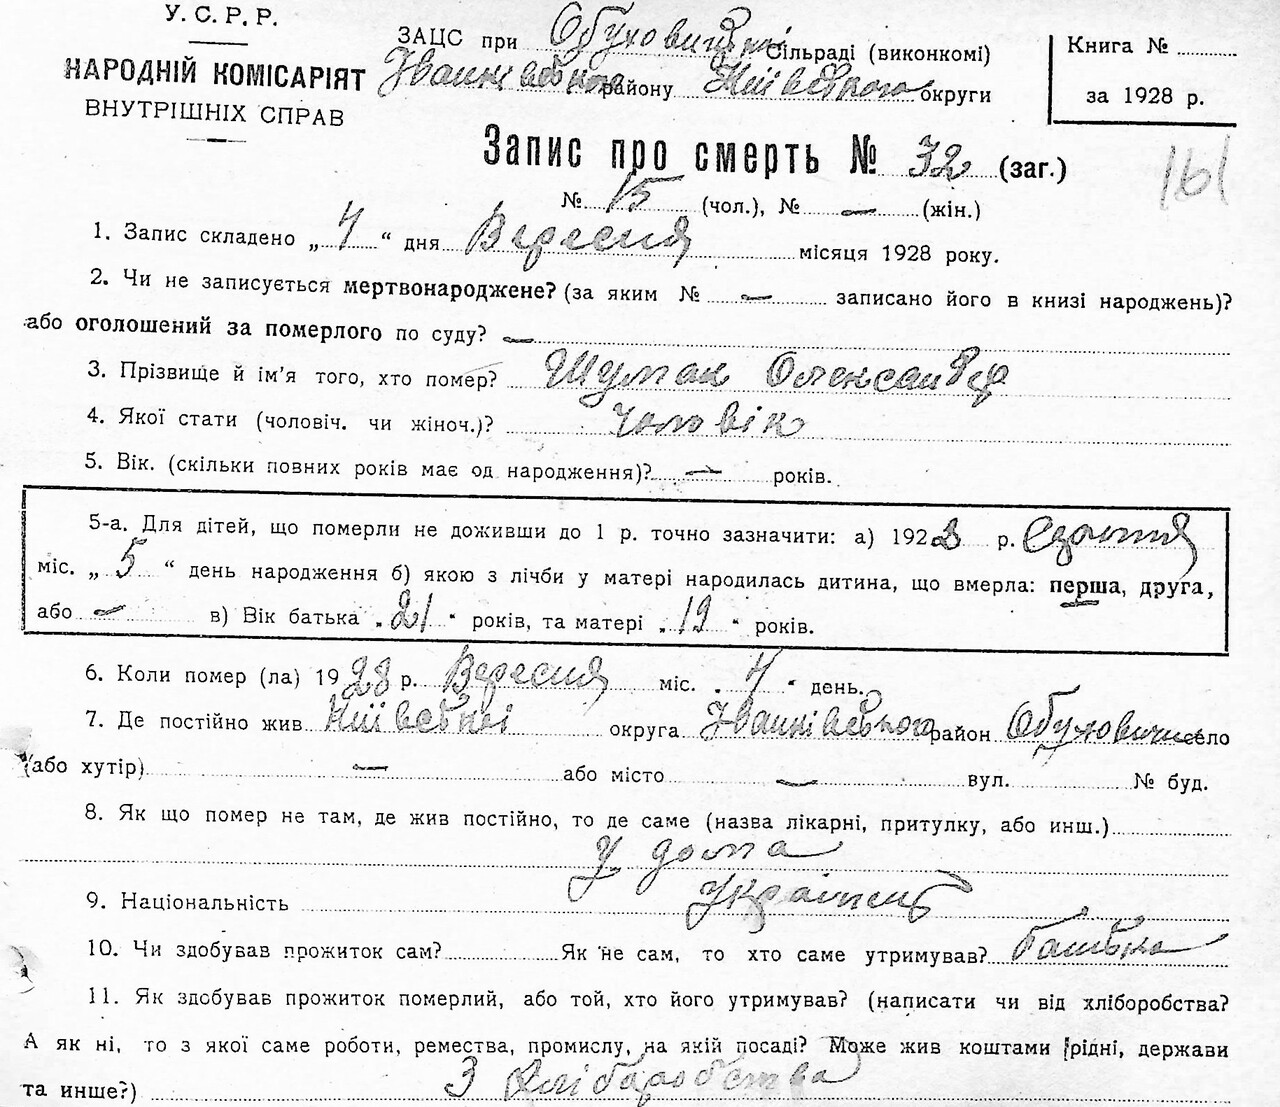 У. С. Р. Р.
НАРОДНІЙ КОМІСАРІЯТ
ВНУТРІШНІХ СПРАВ
ЗАЦС при Обуховицькі Сільраді (виконкомі)
Іванківського району Київського округи
Книга №
за 1928 р.
Запис про смерть № 32 (заг.)
161
№ 15 (чол.), № — (жін.)
1. Запис складено „ 4 “ дня Вересня місяця 1928 року.
2. Чи не записується мертвонароджене? (за яким № — записано його в книзі народжень)?
або оголошений за померлого по суду? —
3. Прізвище й ім'я того, хто помер? Шумак Олександр
4. Якої стати (чоловіч. чи жіноч.)? Чоловік
5. Вік. (скільки повних років має од народження)? — років.
5-а. Для дітей, що померли не доживши до 1 р. точно зазначити: а) 1928 р.
міс. „ 5 “ день народження б) якою з лічби у матері народилась дитина, що вмерла: перша, друга,
або — в) Вік батька „ 21 “ років, та матері „ 19 “ років.
6. Коли помер (ла) 1928 р. Вересня міс. „ 4 “ день.
7. Де постійно жив Київські округа Іванківського район Обуховичи село
(або хутір) — або місто — вул. № буд.
8. Як що помер не там, де жив постійно, то де саме (назва лікарні, притулку, або инш.)
У дома
9. Національність Українець
10. Чи здобував прожиток сам? Як не сам, то хто саме утримував? батько
11. Як здобував прожиток померлий, або той, хто його утримував? (написати чи від хліборобства?
А як ні, то з якої саме роботи, ремества, промислу, на якій посаді? Може жив коштами рідні, держави
та инше?) З хліборобства